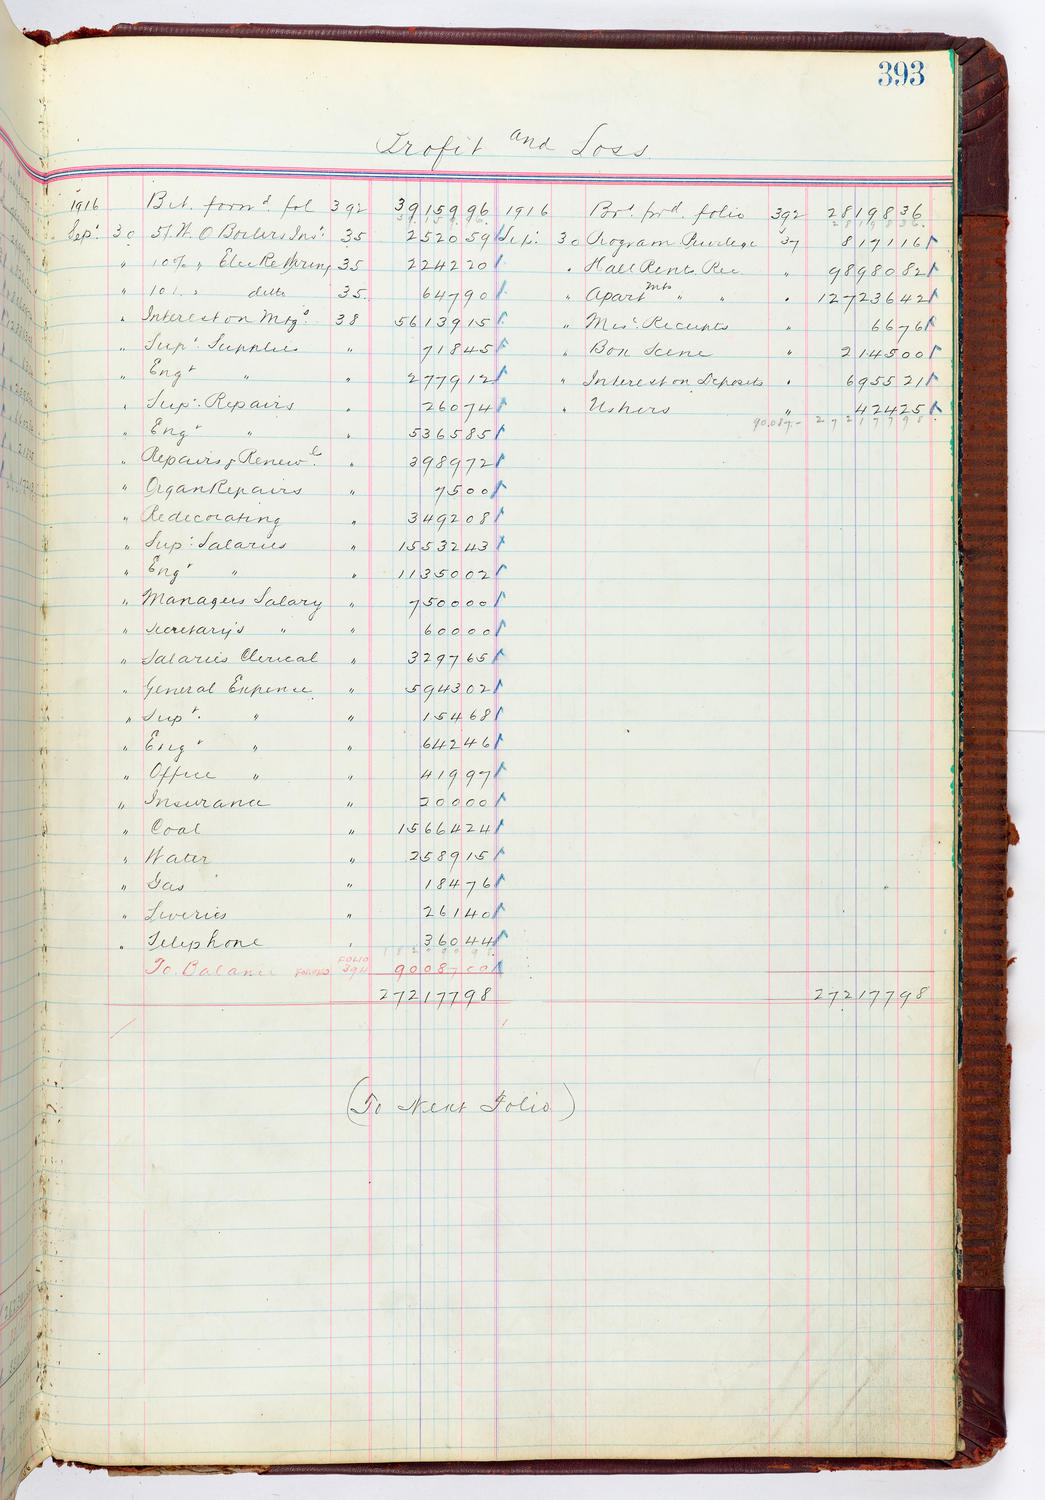 393
Profit and Loss
1916 Bct. forw.d fol 392 39,159.96 1916 Bro.t fwd. folio 392 28,198.36
39,159.96 28,198.36
Sep.t 30 5% W. O Boilers Ins.t 35 2520.59 Sep.t 30 Program Privilege 37 8171.16
" 10% " Elec Re Wiring 35 2242.20 " Hall Rents Rec " 98980.82
" 10% " ditto 35. 647.90 " Apartmts " " " 127236.42
" Interest on Mtg.s 38 56139.15 " Mis.c Receipts " 66.76
" Sup.t Supplies " 718.45 " Box Scene " 2145.00
" Eng.r " " 2779.12 " Interest on Deposits " 6955.21
" Sup.t Repairs " 260.74 " Ushers " 424.25
90.087.- 272177.98
" Eng.r " " 5365.85
" Repairs & Renew.l " 3989.72
" Organ Repairs " 75.00
" Redecorating " 3492.08
" Sup.t Salaries " 15532.43
" Eng.r " " 11350.02
" Managers Salary " 7500.00
" Secretary's " " 600.00
" Salaries Clerical " 3297.65
" General Expence " 5943.02
" Sup.t " " 154.68
" Eng.r " " 642.46
" Office " " 419.97
" Insurance " 200.00
" Coal " 15664.24
" Water " 2589.15
" Gas " 184.76
" Liveries " 261.40
" Telephone " 360.44
182090.98
To Balance FORWD FOLIO 394 90087.00
272177.98 272177.98
(To Next Folio)